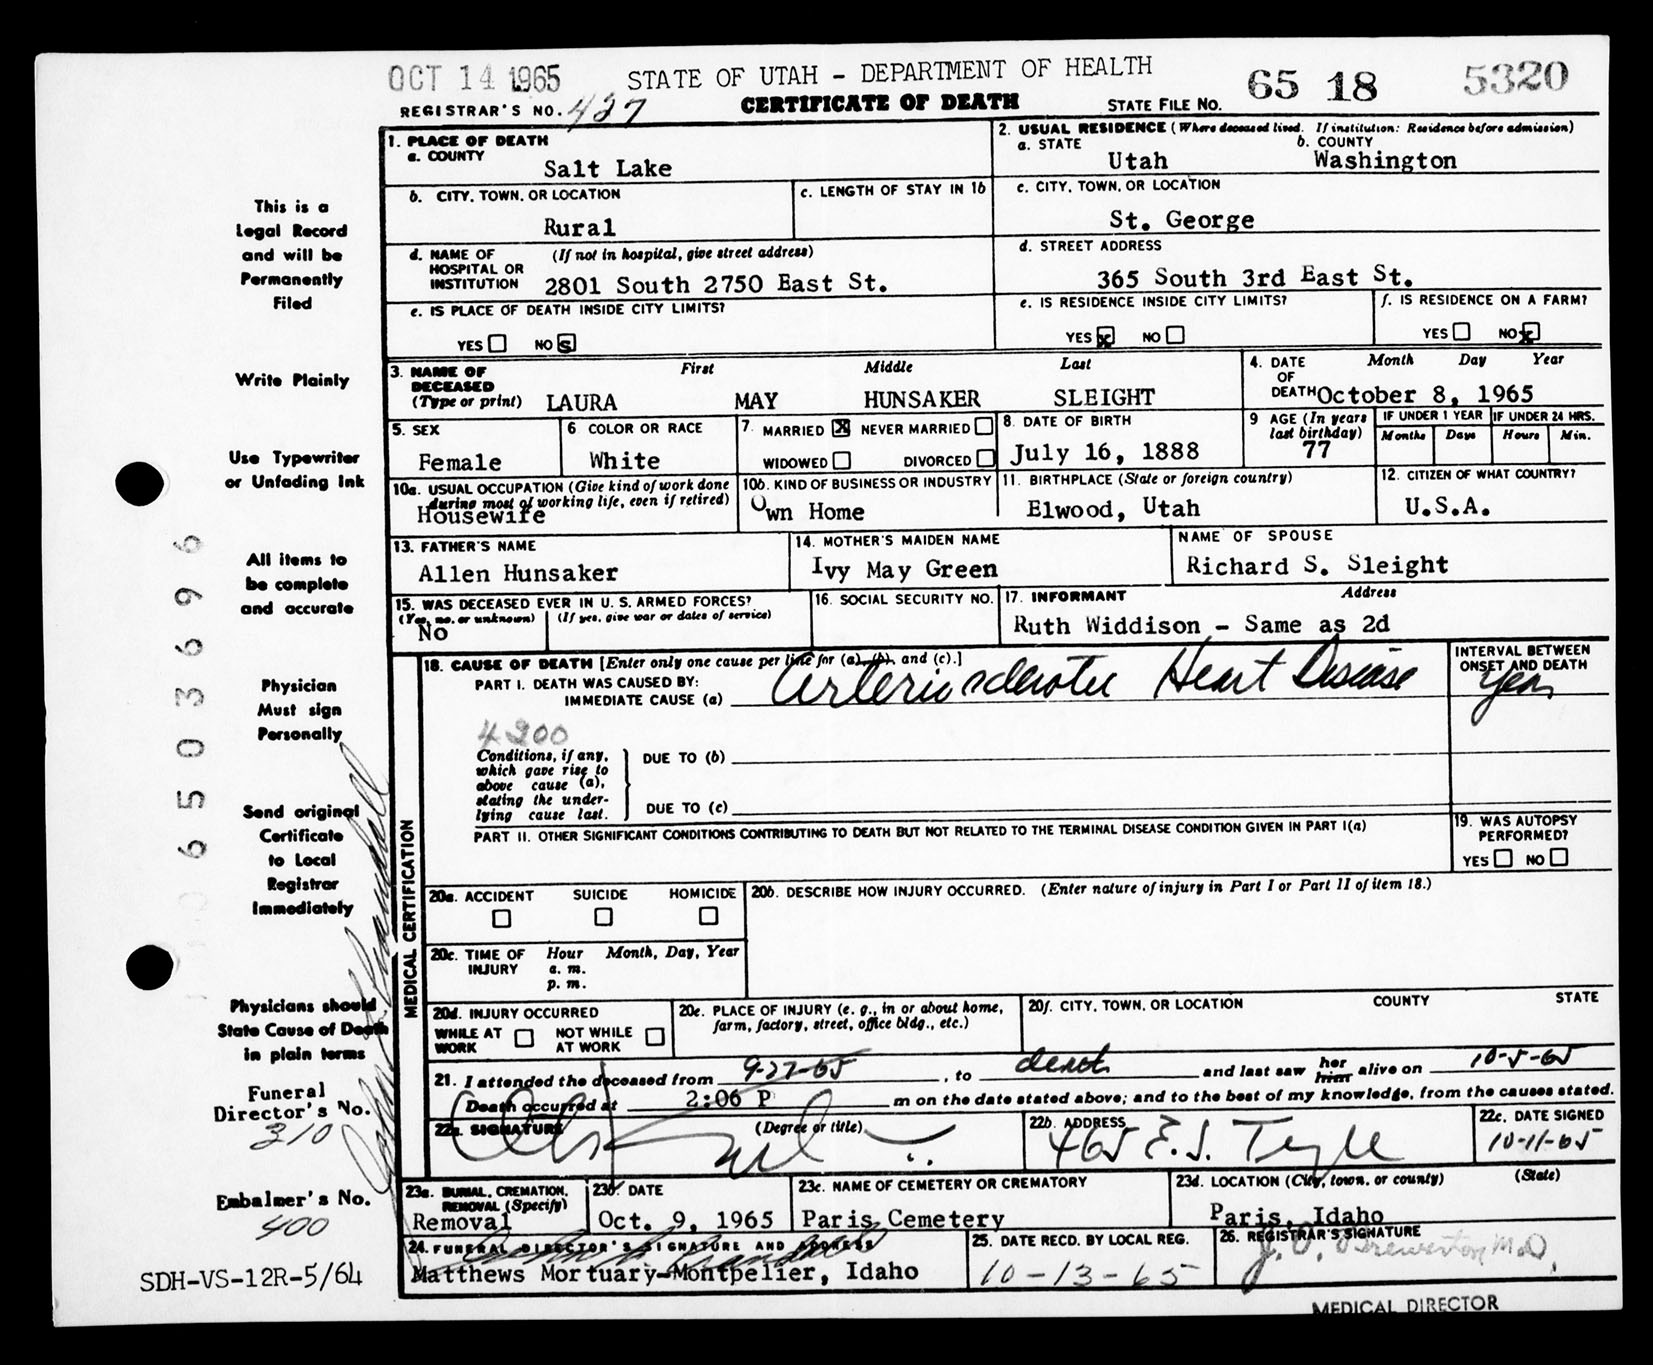 OCT 14 1965
STATE OF UTAH - DEPARTMENT OF HEALTH
65 18 5320
REGISTRAR'S NO. 427
CERTIFICATE OF DEATH
STATE FILE NO.
This is a
Legal Record
and will be
Permanently
Filed
Write Plainly
Use Typewriter
or Unfading Ink
All items to
be complete
and accurate
Physician
Must sign
Personally
Send original
Certificate
to Local
Registrar
Immediately
Physicians should
State Cause of Death
in plain terms
Funeral
Director's No.
310
Embalmer's No.
400
SDH-VS-12R-5/64
6503696
1. PLACE OF DEATH
a. COUNTY
Salt Lake
2. USUAL RESIDENCE (Where deceased lived. If institution: Residence before admission)
a. STATE b. COUNTY
Utah Washington
b. CITY, TOWN, OR LOCATION
Rural
c. LENGTH OF STAY IN 1b
c. CITY, TOWN, OR LOCATION
St. George
d. NAME OF (If not in hospital, give street address)
HOSPITAL OR
INSTITUTION 2801 South 2750 East St.
d. STREET ADDRESS
365 South 3rd East St.
e. IS PLACE OF DEATH INSIDE CITY LIMITS?
YES NO s
e. IS RESIDENCE INSIDE CITY LIMITS?
YES x NO
f. IS RESIDENCE ON A FARM?
YES NO x
3. NAME OF DECEASED (Type or print)
First Middle Last
LAURA MAY HUNSAKER SLEIGHT
4. DATE OF DEATH Month Day Year
October 8, 1965
5. SEX
Female
6 COLOR OR RACE
White
7. MARRIED X NEVER MARRIED
WIDOWED DIVORCED
8. DATE OF BIRTH
July 16, 1888
9 AGE (In years last birthday)
77
IF UNDER 1 YEAR IF UNDER 24 HRS.
Months Days Hours Min.
10a. USUAL OCCUPATION (Give kind of work done
during most of working life, even if retired)
Housewife
10b. KIND OF BUSINESS OR INDUSTRY
Own Home
11. BIRTHPLACE (State or foreign country)
Elwood, Utah
12. CITIZEN OF WHAT COUNTRY?
U.S.A.
13. FATHER'S NAME
Allen Hunsaker
14. MOTHER'S MAIDEN NAME
Ivy May Green
NAME OF SPOUSE
Richard S. Sleight
15. WAS DECEASED EVER IN U. S. ARMED FORCES?
(Yes, no, or unknown) (If yes, give war or dates of service)
No
16. SOCIAL SECURITY NO.
17. INFORMANT Address
Ruth Widdison - Same as 2d
MEDICAL CERTIFICATION
18. CAUSE OF DEATH [Enter only one cause per line for (a), (b), and (c).]
PART I. DEATH WAS CAUSED BY:
IMMEDIATE CAUSE (a) Arteriosclerotic Heart Disease
INTERVAL BETWEEN
ONSET AND DEATH
Years
4200
Conditions, if any,
which gave rise to
above cause (a),
stating the under-
lying cause last.
DUE TO (b)
DUE TO (c)
PART II. OTHER SIGNIFICANT CONDITIONS CONTRIBUTING TO DEATH BUT NOT RELATED TO THE TERMINAL DISEASE CONDITION GIVEN IN PART I(a)
19. WAS AUTOPSY
PERFORMED?
YES NO
20a. ACCIDENT SUICIDE HOMICIDE
20b. DESCRIBE HOW INJURY OCCURRED. (Enter nature of injury in Part I or Part II of item 18.)
20c. TIME OF INJURY Hour Month, Day, Year
a. m.
p. m.
20d. INJURY OCCURRED
WHILE AT WORK NOT WHILE AT WORK
20e. PLACE OF INJURY (e. g., in or about home,
farm, factory, street, office bldg., etc.)
20f. CITY, TOWN, OR LOCATION COUNTY STATE
21. I attended the deceased from 9-27-65, to death and last saw her him alive on 10-5-65
Death occurred at 2:06 P m on the date stated above; and to the best of my knowledge, from the causes stated.
22a. SIGNATURE (Degree or title)
22b. ADDRESS
465 E. S. Temple
22c. DATE SIGNED
10-11-65
23a. BURIAL, CREMATION,
REMOVAL (Specify)
Removal
23b. DATE
Oct. 9, 1965
23c. NAME OF CEMETERY OR CREMATORY
Paris Cemetery
23d. LOCATION (City, town, or county) (State)
Paris, Idaho
24. FUNERAL DIRECTOR'S SIGNATURE AND ADDRESS
Matthews Mortuary-Montpelier, Idaho
25. DATE RECD. BY LOCAL REG.
10-13-65
26. REGISTRAR'S SIGNATURE
Brewerton M.D.
MEDICAL DIRECTOR